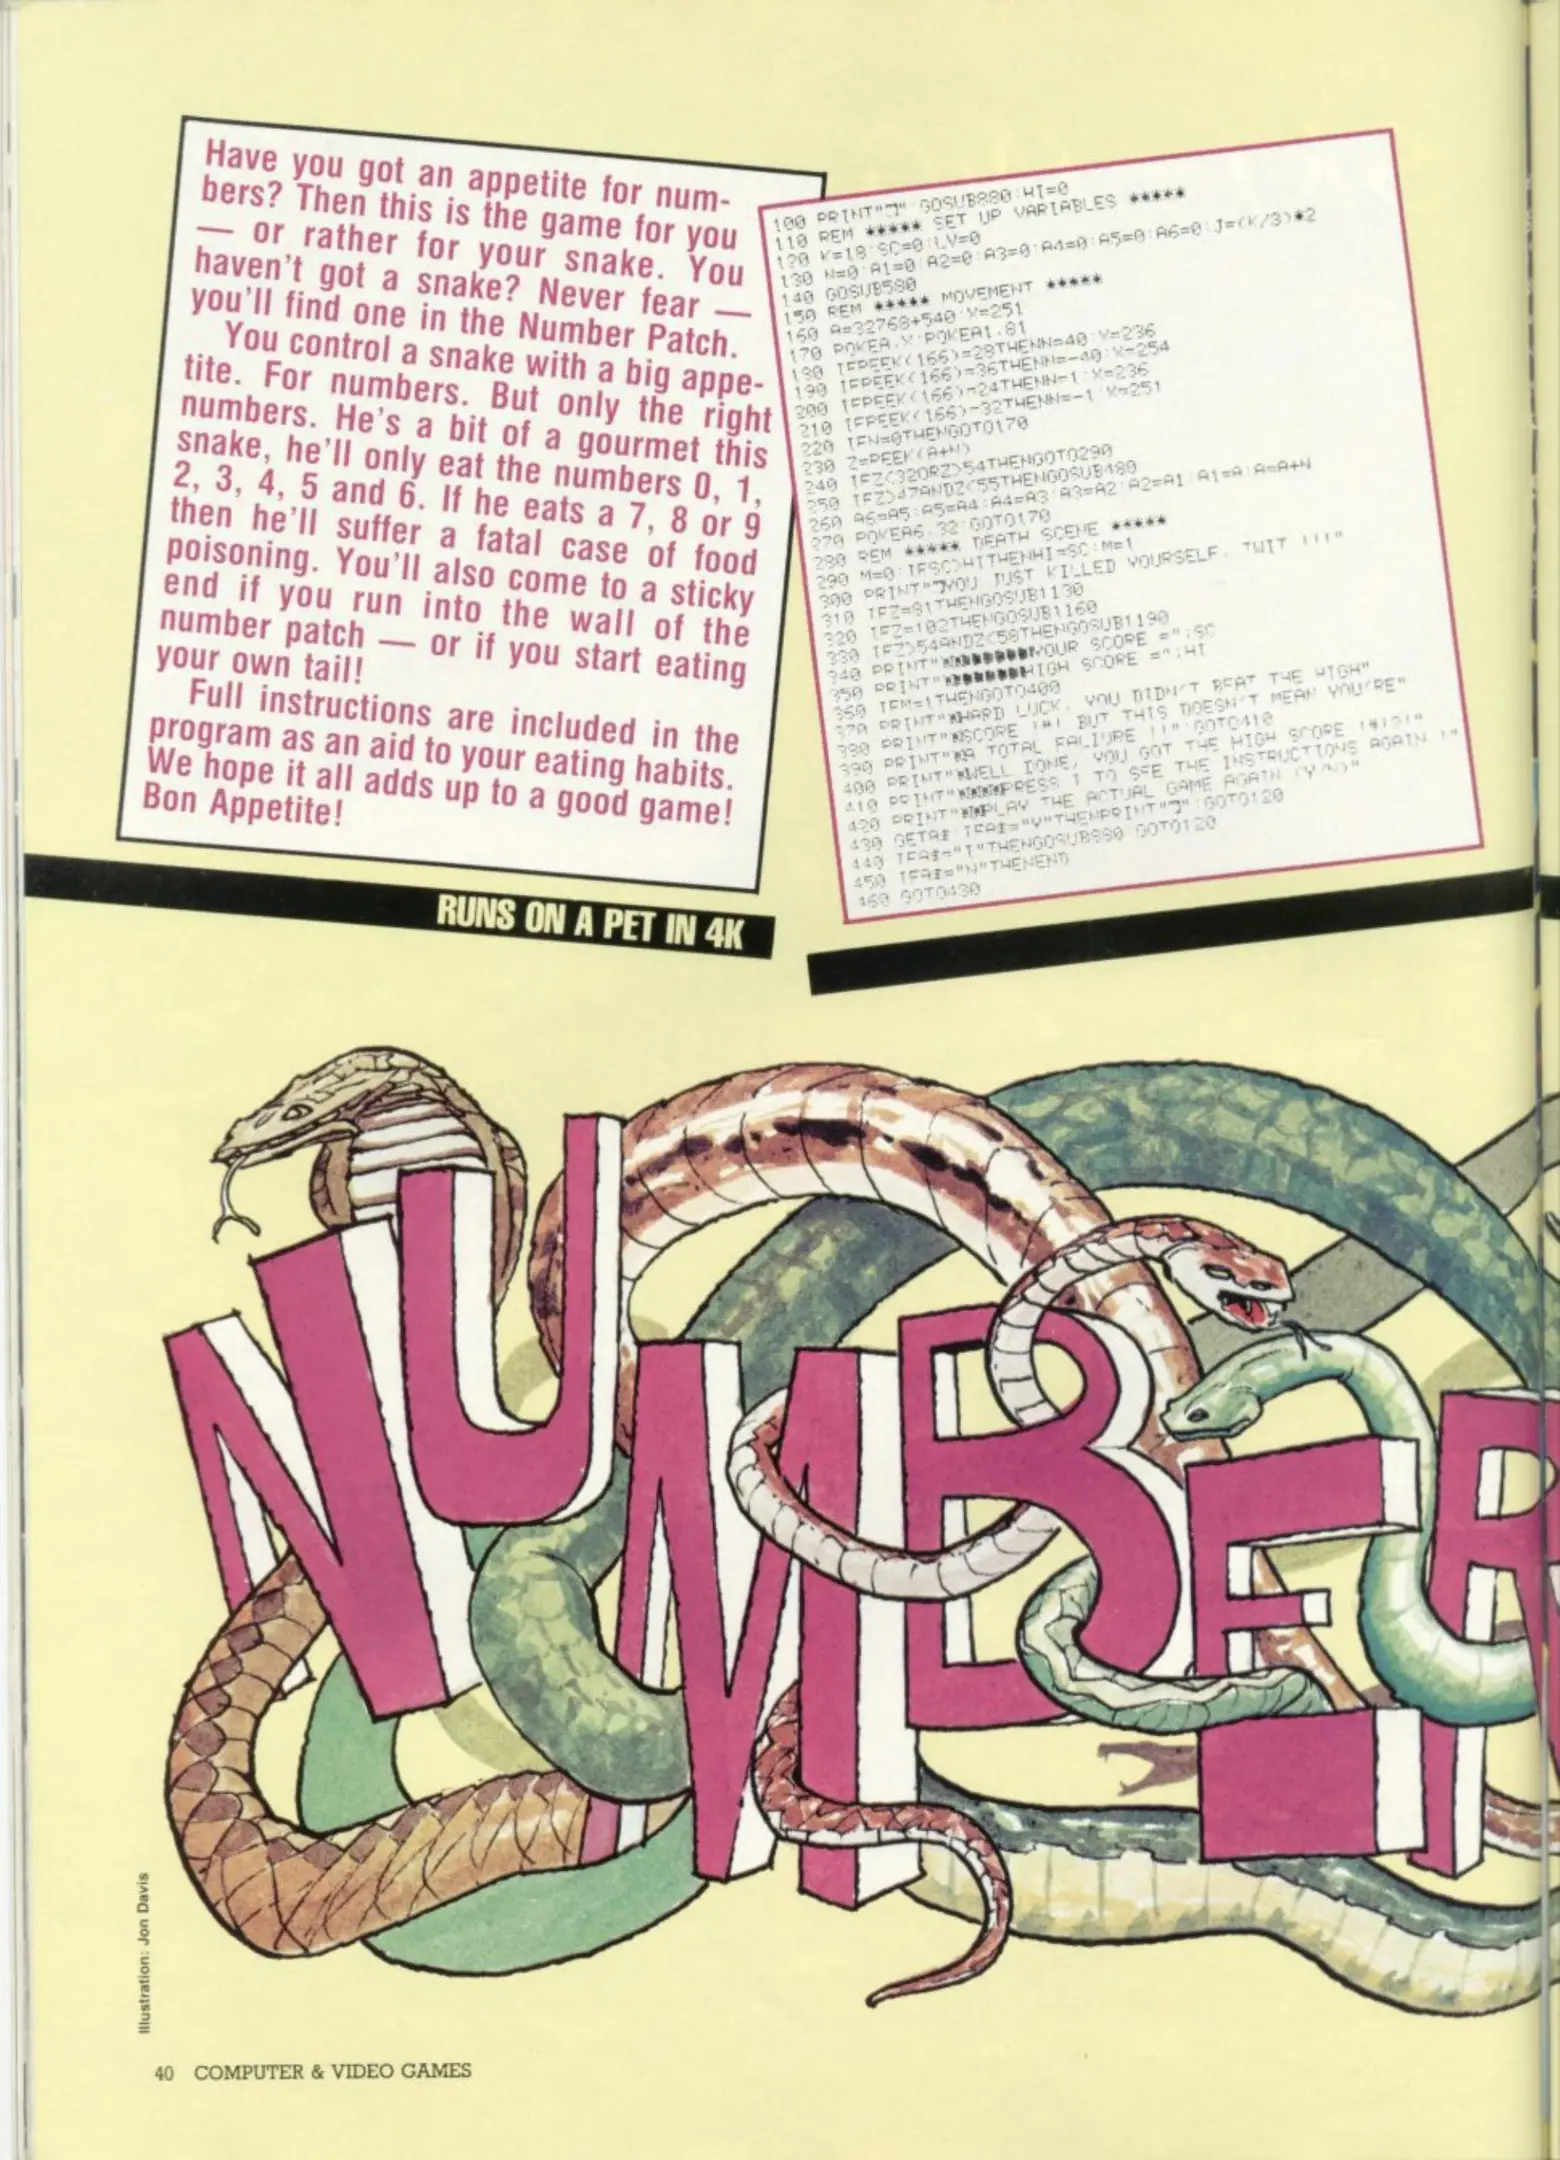 Have you got an appetite for num-
bers? Then this is the game for you
— or rather for your snake. You
haven't got a snake? Never fear —
you'll find one in the Number Patch.
You control a snake with a big appe-
tite. For numbers. But only the right
numbers. He's a bit of a gourmet this
snake, he'll only eat the numbers 0, 1,
2, 3, 4, 5 and 6. If he eats a 7, 8 or 9
then he'll suffer a fatal case of food
poisoning. You'll also come to a sticky
end if you run into the wall of the
number patch — or if you start eating
your own tail!
Full instructions are included in the
program as an aid to your eating habits.
We hope it all adds up to a good game!
Bon Appetite!
RUNS ON A PET IN 4K
100 PRINT" ":GOSUB880:HI=0
110 REM ***** SET UP VARIABLES *****
120 K=18:SC=0:LV=0
130 N=0:A1=0:A2=0:A3=0:A4=0:A5=0:A6=0:J=(K/3)*2
140 GOSUB580
150 REM ***** MOVEMENT *****
160 A=32768+540:X=251
170 POKEA,X:POKEA1,81
180 IFPEEK(166)=28THENN=40:X=236
190 IFPEEK(166)=36THENN=-40:X=254
200 IFPEEK(166)=24THENN=1:X=236
210 IFPEEK(166)=32THENN=-1:X=251
220 IFN=0THENGOTO170
230 Z=PEEK(A+N)
240 IFZ<32ORZ>54THENGOTO290
250 IFZ>47ANDZ<55THENGOSUB480
260 A6=A5:A5=A4:A4=A3:A3=A2:A2=A1:A1=A:A=A+N
270 POKEA6,32:GOTO170
280 REM ***** DEATH SCENE *****
290 M=0:IFSC>HITHENHI=SC:M=1
300 PRINT" YOU JUST KILLED YOURSELF, TWIT !!!"
310 IFZ=81THENGOSUB1130
320 IFZ=102THENGOSUB1160
330 IFZ>54ANDZ<58THENGOSUB1190
340 PRINT" YOUR SCORE =";SC
350 PRINT" HIGH SCORE =";HI
360 IFM=1THENGOTO400
370 PRINT" HARD LUCK, YOU DIDN'T BEAT THE HIGH"
380 PRINT" SCORE !#! BUT THIS DOESN'T MEAN YOU'RE"
390 PRINT" A TOTAL FAILURE !!":GOTO410
400 PRINT" WELL DONE, YOU GOT THE HIGH SCORE !#!?!"
410 PRINT" PRESS I TO SEE THE INSTRUCTIONS AGAIN !"
420 PRINT" PLAY THE ACTUAL GAME AGAIN (Y/N)"
430 GETA$:IFA$="Y"THENPRINT" ":GOTO120
440 IFA$="I"THENGOSUB880:GOTO120
450 IFA$="N"THENEND
460 GOTO430
NUMBER
Illustration: Jon Davis
40 COMPUTER & VIDEO GAMES